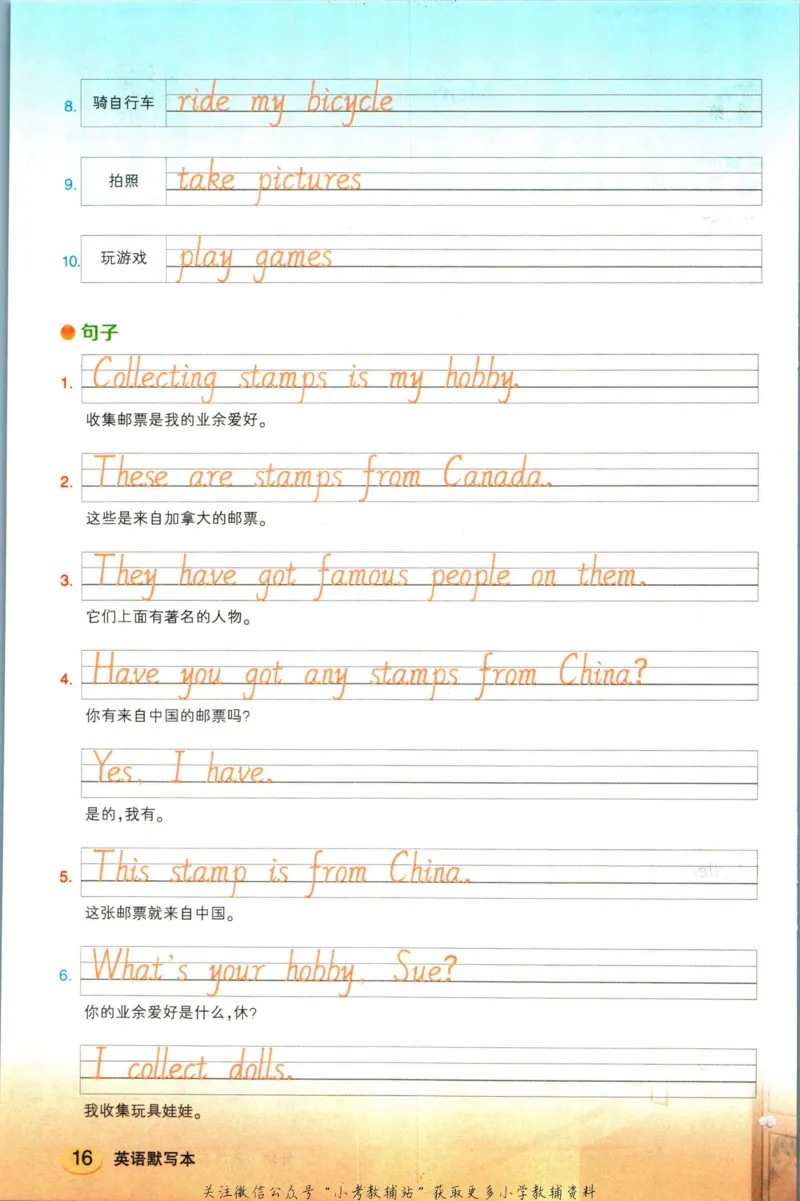 8. 骑自行车 ride my bicycle
9. 拍照 take pictures
10. 玩游戏 play games
句子
1. Collecting stamps is my hobby.
收集邮票是我的业余爱好。
2. These are stamps from Canada.
这些是来自加拿大的邮票。
3. They have got famous people on them.
它们上面有著名的人物。
4. Have you got any stamps from China?
你有来自中国的邮票吗?
Yes, I have.
是的,我有。
5. This stamp is from China.
这张邮票就来自中国。
6. What's your hobby, Sue?
你的业余爱好是什么,休?
I collect dolls.
我收集玩具娃娃。
16 英语默写本
关注微信公众号“小考教辅站”获取更多小学教辅资料